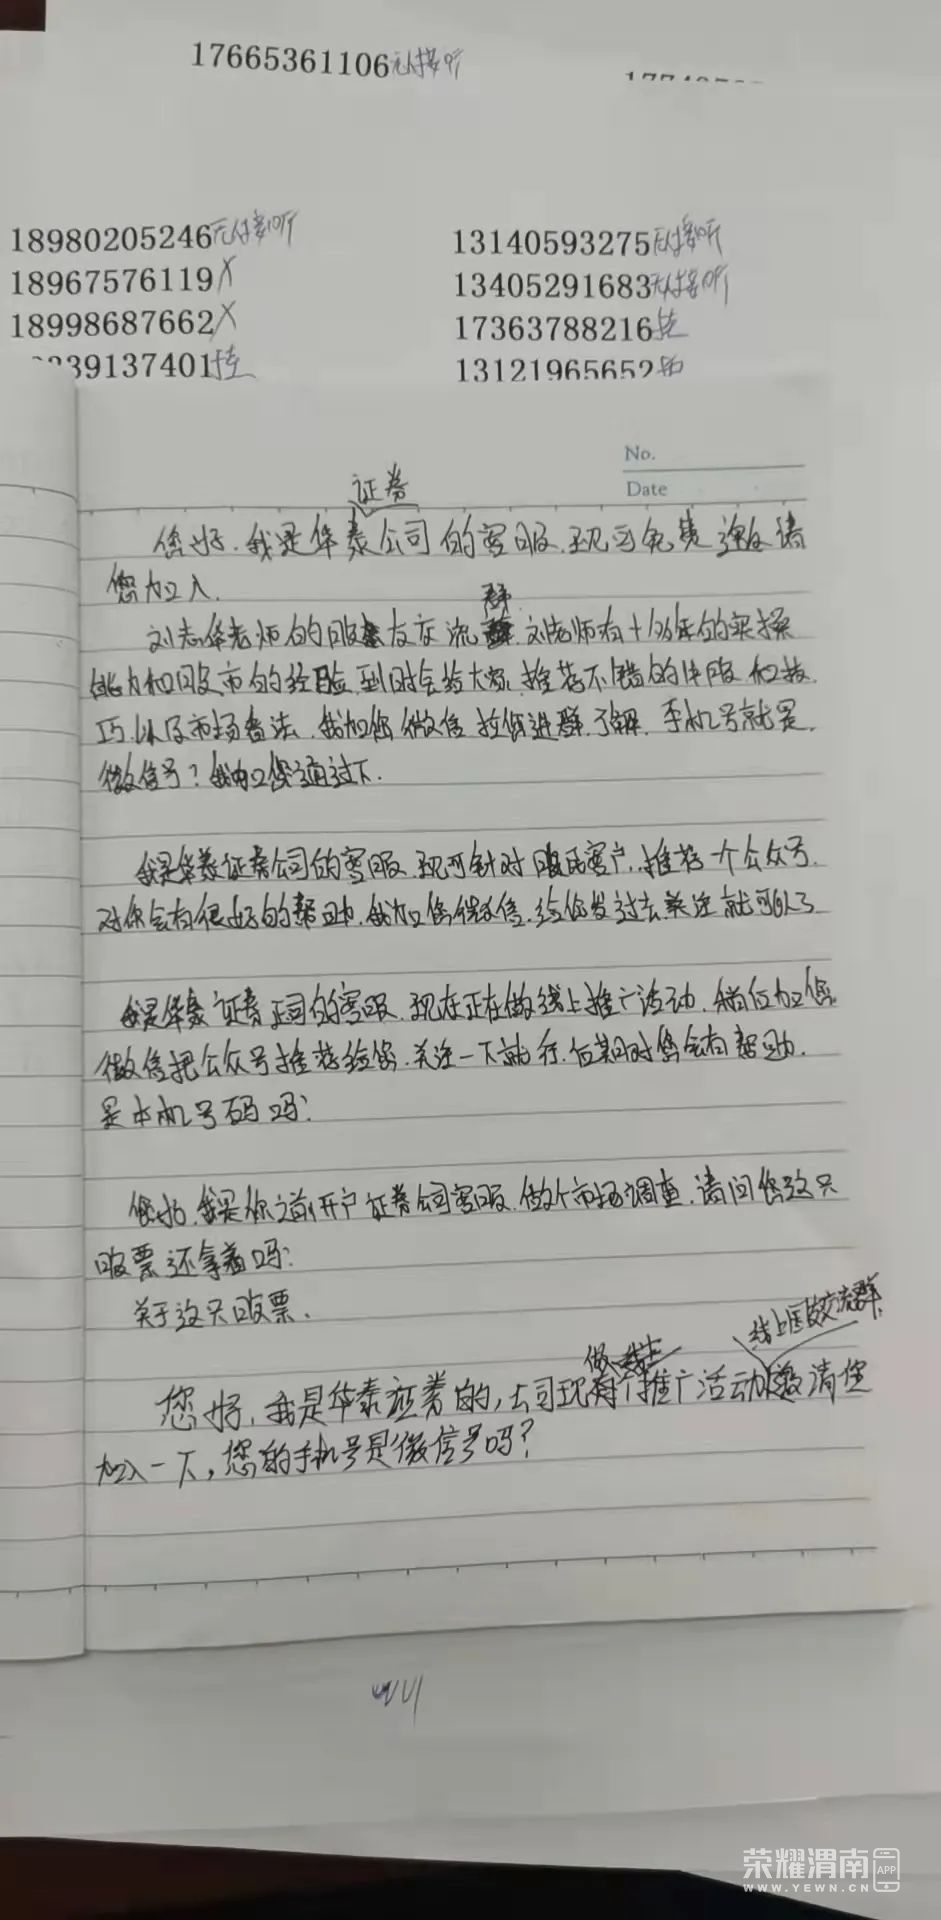 17665361106无人接听
18980205246无人接听
13140593275无人接听
18967576119X
13405291683无人接听
18998687662X
17363788216挂
39137401挂
13121965652
No.
Date
证券
您好.我是华泰公司的客服.现可免费邀请
您加入.
群
刘志华老师的股友交流 刘老师有十多年的实操
能力和股市的经验.到时会给大家推荐不错的牛股和技
巧以及市场看法.我加您微信拉您进群了解.手机号就是
微信号?我加您通过下.
我是华泰证券公司的客服.现可针对股民客户.推荐一个公众号.
对你会有很好的帮助.我加您微信.给您发过去关注就可以了
我是华泰证券公司的客服.现在正在做线上推广活动.稍后加您
微信把公众号推荐给您.关注一下就行.后期对您会有帮助.
是本机号码吗:
您好.我是你之前开户证券公司客服.做个市场调查.请问您这只
股票还拿着吗:
关于这只股票.
线上股友交流群
做 线上
您好,我是华泰证券的,公司现有个推广活动邀请您
加入一下,您的手机号是微信号吗?
荣耀渭南APP
WWW.YEWN.CN